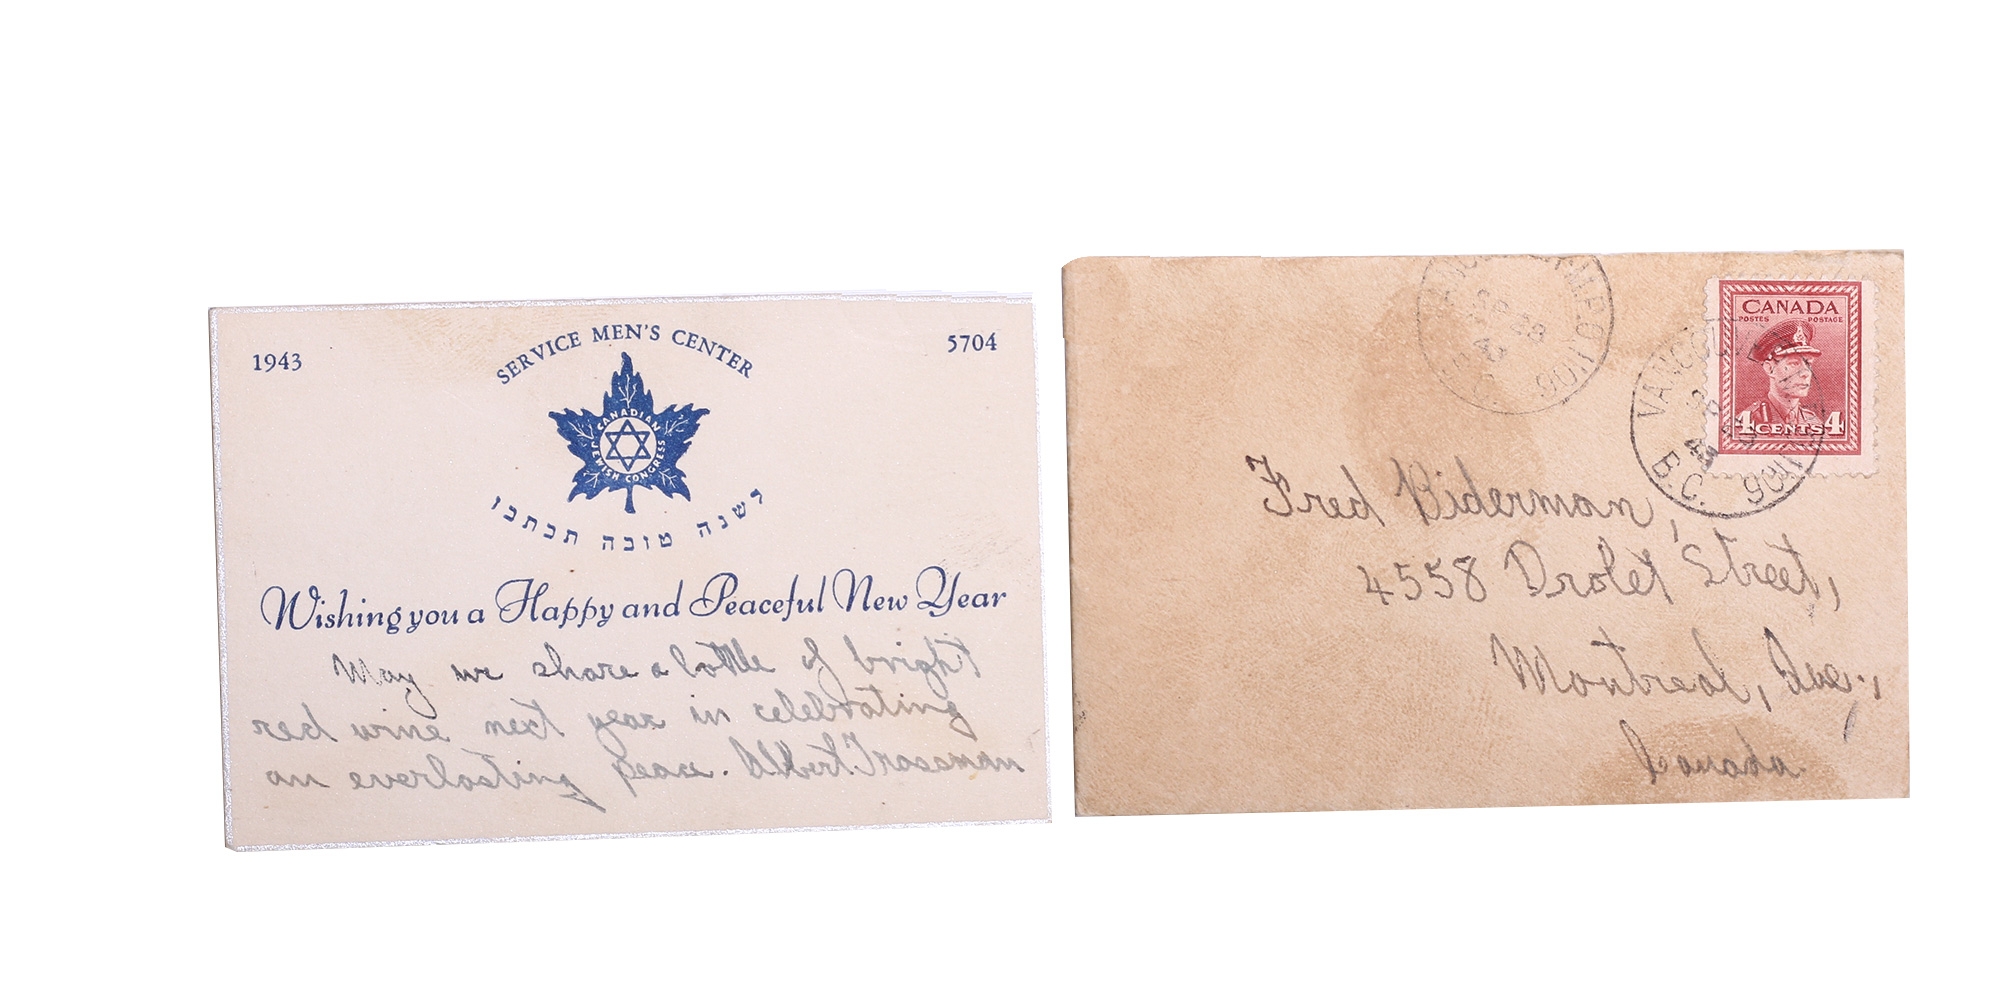 1943
SERVICE MEN'S CENTER
5704
CANADIAN
JEWISH CONGRESS
לשנה טובה תכתבו
Wishing you a Happy and Peaceful New Year
May we share a bottle of bright
red wine next year in celebrating
an everlasting peace. Albert Grossman
VANCOUVER M.P.O. 1106
CANADA
POSTES POSTAGE
4 CENTS 4
VANCOUVER
B.C.
1106
Fred Biderman,
4558 Drolet Street,
Montreal, Que.,
Canada.